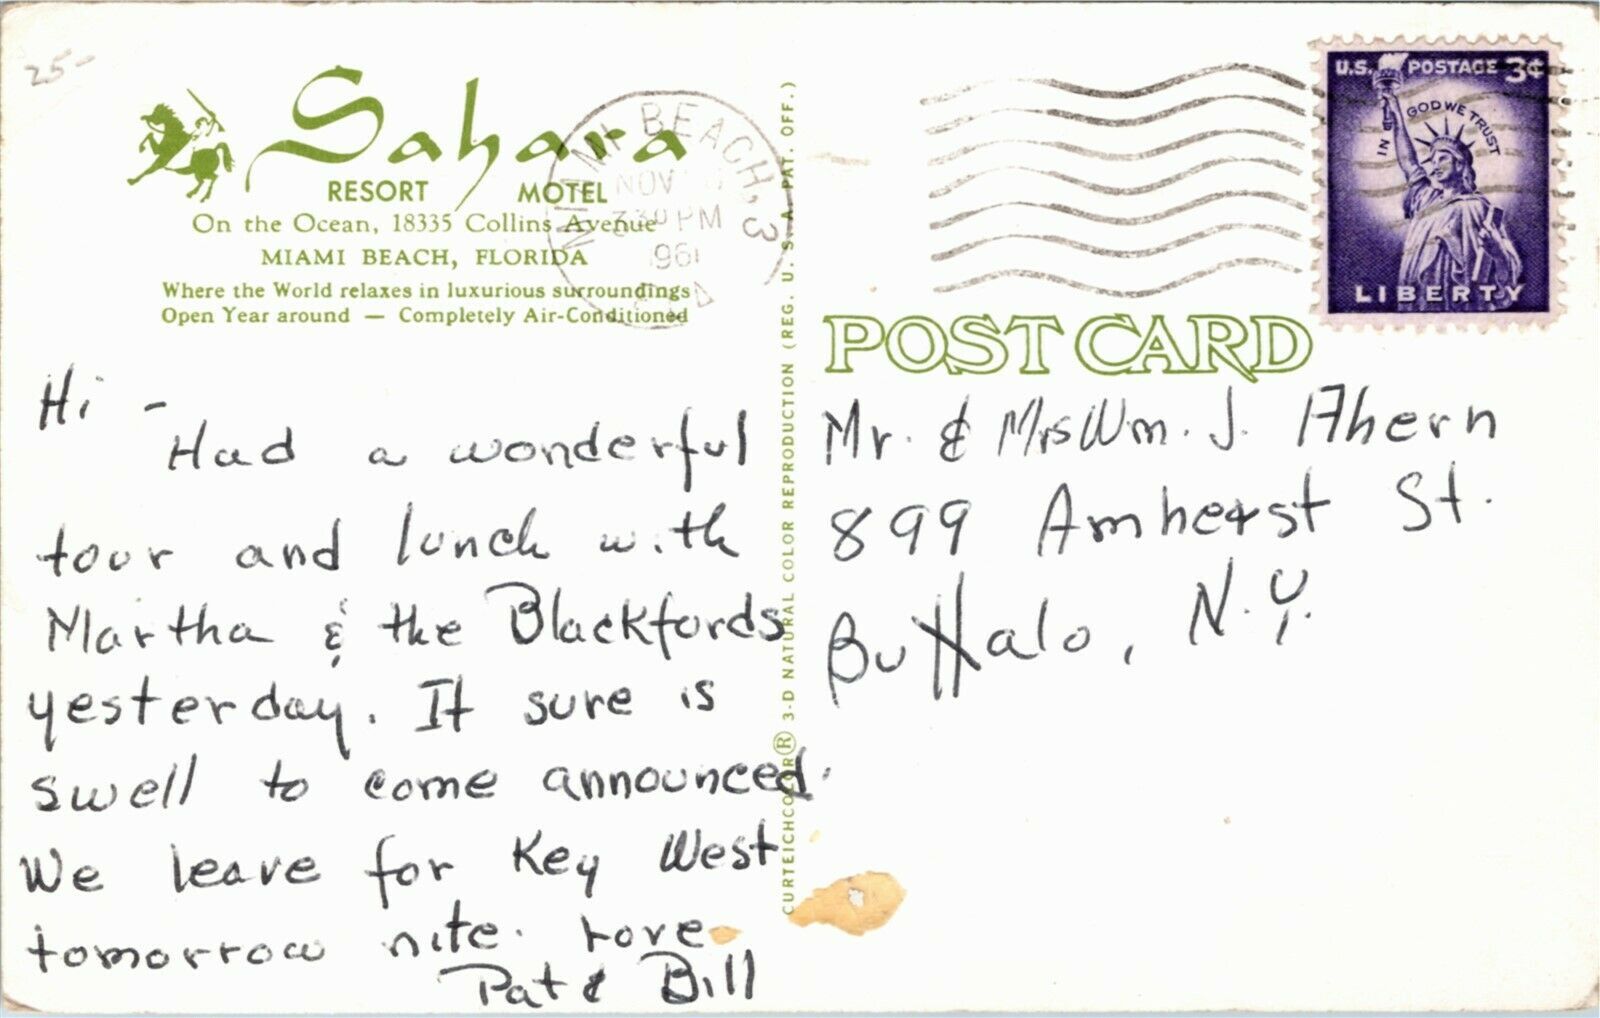 25-
Sahara
RESORT MOTEL
On the Ocean, 18335 Collins Avenue
MIAMI BEACH, FLORIDA
Where the World relaxes in luxurious surroundings
Open Year around — Completely Air-Conditioned
MIAMI BEACH, 3
NOV
330 PM
1961
Hi -
Had a wonderful
tour and lunch with
Martha & the Blackfords
yesterday. It sure is
swell to come announced.
We leave for Key West
tomorrow nite. Love
Pat & Bill
CURTEICHCOLOR® 3-D NATURAL COLOR REPRODUCTION (REG. U. S. A. PAT. OFF.)
U.S. POSTAGE 3¢
IN GOD WE TRUST
LIBERTY
POST CARD
Mr. & Mrs Wm. J. Ahern
899 Amherst St.
Buffalo, N.Y.